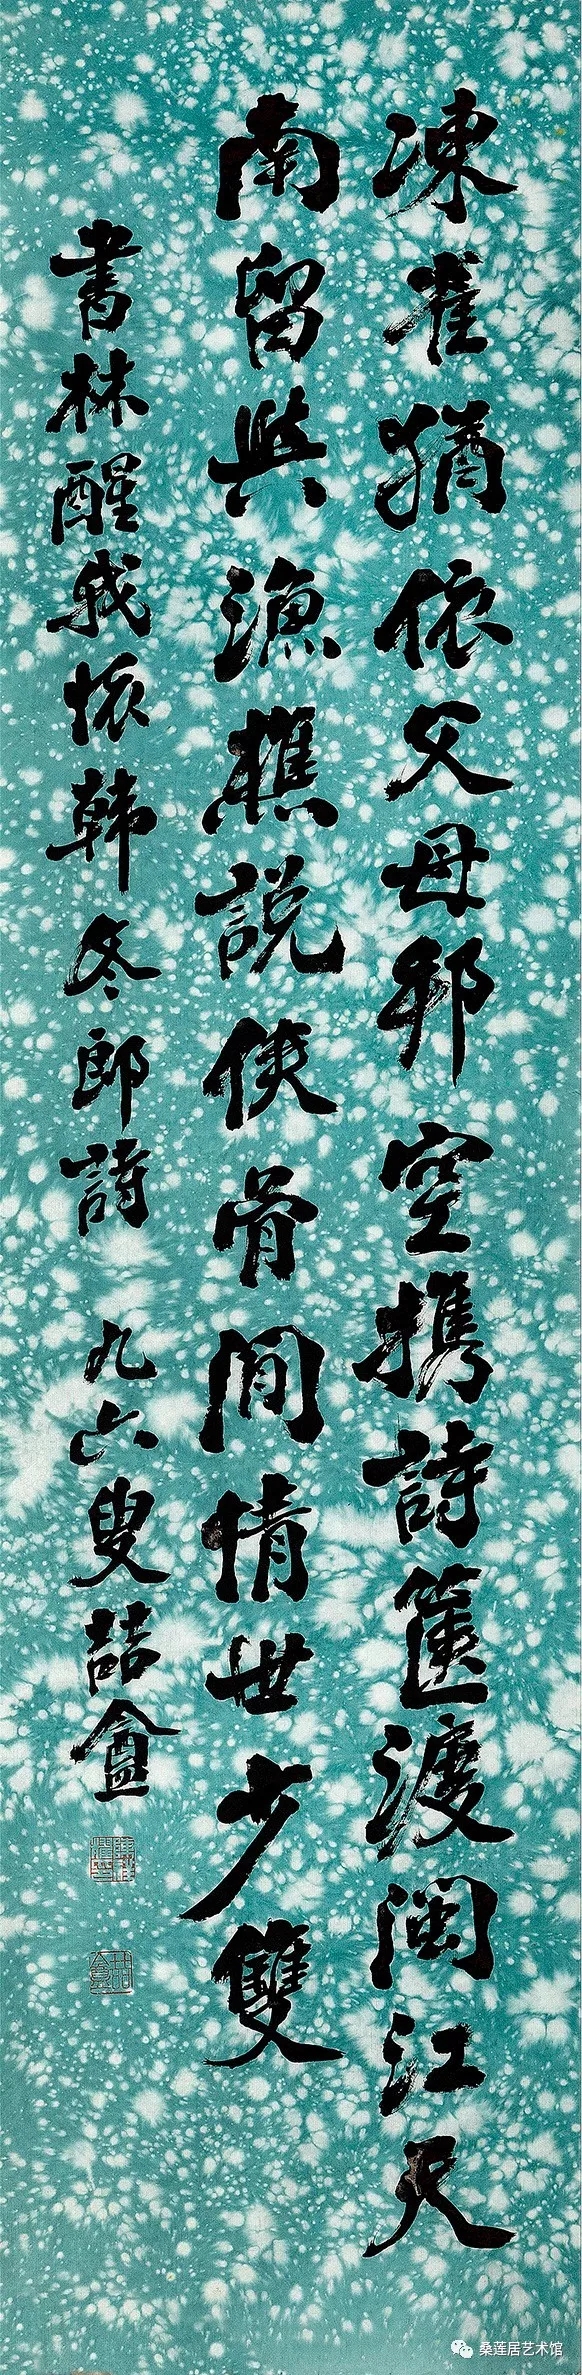 凍雀猶依父母邦空攜詩篋渡閩江天
南留與漁樵説俠骨閒情世少雙
書林醒我懷韓冬郎詩 九六叟喆盫
桑莲居艺术馆